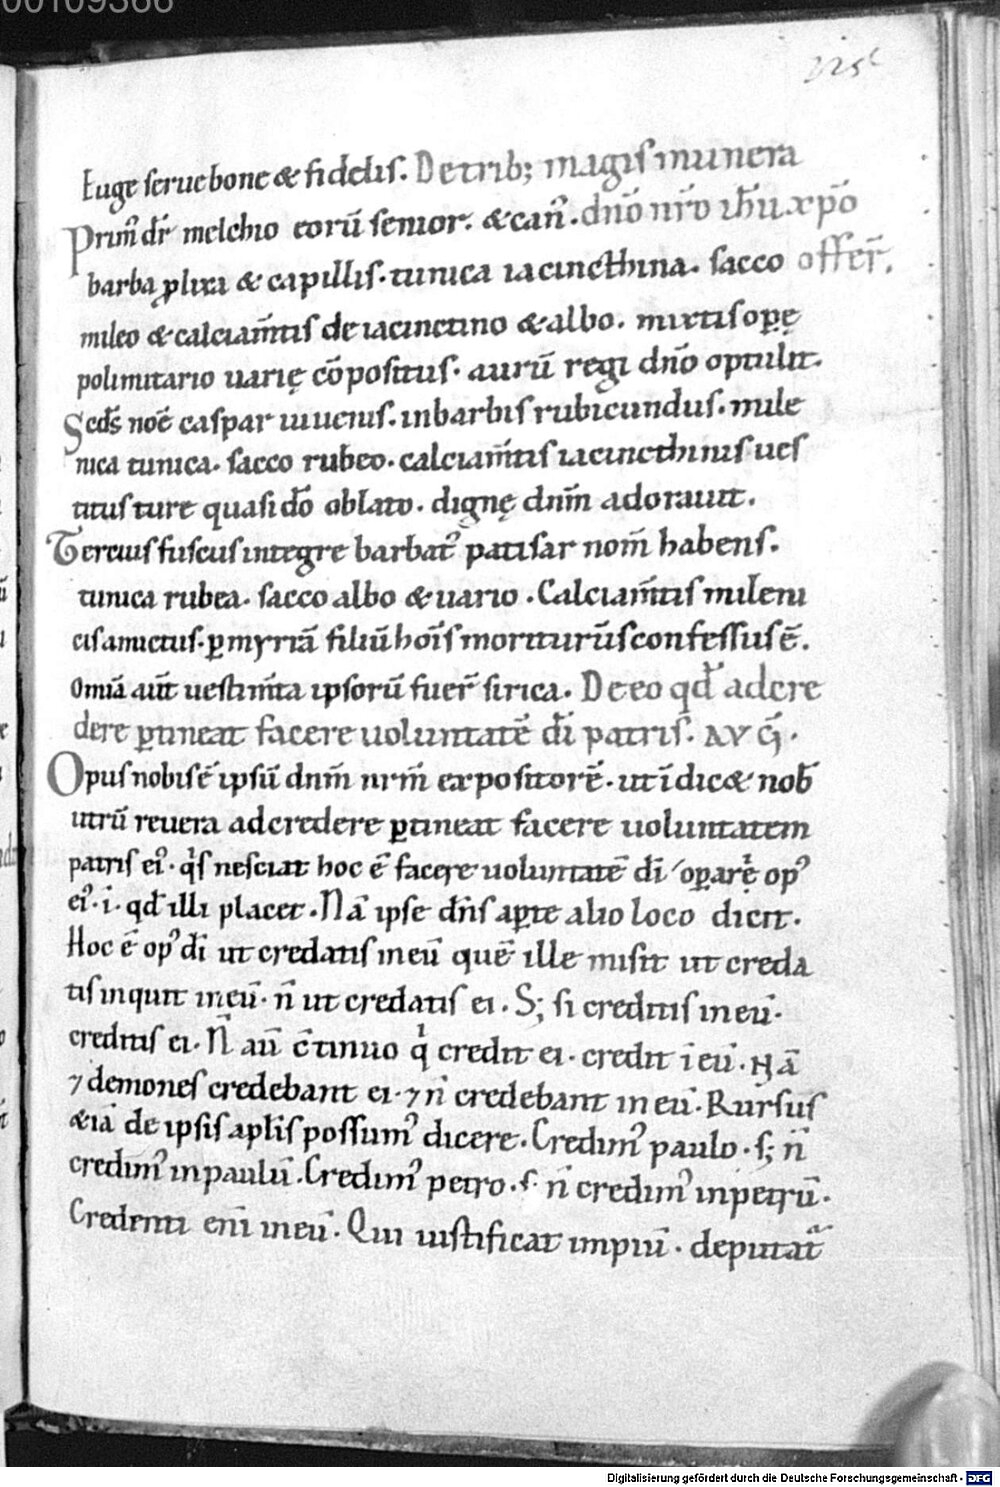 00109366
125
Euge serue bone & fidelis. De trib; magis munera
Prim᷒ dr̄ melchio eorū senior. & can᷒. dn̄o nr̄o ih̄u xp̄o
barba ꝓlixa & capillis. tunica iacincthina. sacco offer̄.
mileo & calciam̄tis de iacinctino & albo. mixtis opę
polimitario uarię cōpositus. aurū regi dn̄o optulit.
Sed̄s noē caspar iuuenis. in barbis rubicundus. mile
nica tunica. sacco rubeo. calciam̄tis iacincthinis ues
titus ture quasi dō oblato. dignę dn̄m adorauit.
Tercius fuscus integre barbat᷒ patisar nom̄ habens.
tunica rubea. sacco albo & uario. Calciam̄tis mileni
cis amictus. ꝑ myrrā filiū hoīs moriturū s confessus ē.
Omīa aūt uestim̄ta ipsorū fuer̄ sirica. De eo qđ ad cre
dere ꝑtineat facere uoluntatē dī patris. AVḠ.
Opus nobis ē ipsū dn̄m nr̄m expositorē. ut ī dic& nob̄
utrū reuera ad credere ꝑtineat facere uoluntatem
patris ei᷒. qͥs nesciat hoc ē facere uoluntatē dī oꝑarę op᷒
ei᷒. i. qđ illi placet. Nā ipse dn̄s aꝑte alio loco dicit.
Hoc ē op᷒ dī ut credatis in eū quē ille misit ut creda
tis inquit in eū. n̄ ut credatis ei. S; si creditis in eū.
creditis ei. N̄ aū c̄tinuo qͥ credit ei. credit ī eū. Nā
⁊ demones credebant ei. ⁊ n̄ credebant in eū. Rursus
&iā de ipsis apl̄is possum᷒ dicere. Credim᷒ paulo. s; n̄
credim᷒ in paulū. Credim᷒ petro. s. n̄ credim᷒ in petrū.
Credenti enī in eū. Qui iustificat impiū. deputat᷒
Digitalisierung gefördert durch die Deutsche Forschungsgemeinschaft - DFG